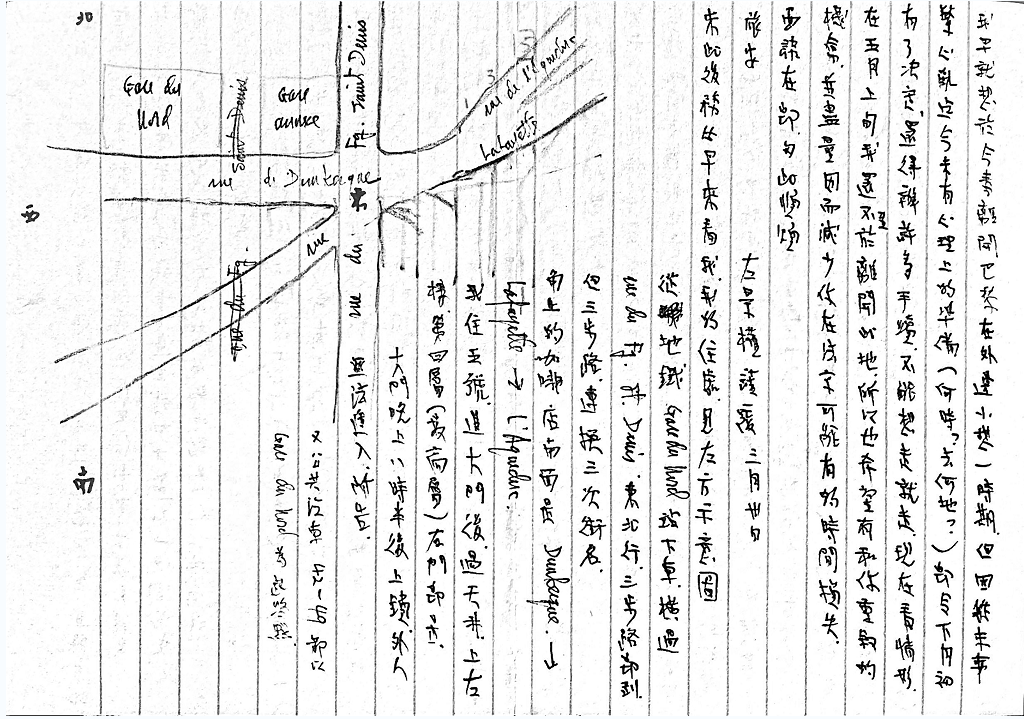 我早就想於今春離開巴黎在外邊小憩一時期.但因種種未
有了決定.還得辦許多手續.不能想走就走.現在看情形.
在五月上旬我還不於離開此地所以也希望有和你重敘的
機會.並盡量因而減少你在法京可能有的時間損失.
面談在即.匆此順頌
旅安
左景權謹覆 三月廿日
來此後務必早來看我.我的住處.見左方示意圖
從地鐵 Gare du Nord 站下車.橫過
rue du Fg. St. Denis. 東北行.三步路即到
但三步路.連換三次街名.
角上的咖啡店前面是 Dunkerque. →
Lafayette → l'Aqueduc.
我住五號.進大門後.過天井.上左
樓.第四層(最高層)左門即是.
大門晚上八時半後上鎖.外人
無法進入.祈告.
又公共汽車
Gare du Nord 為起終點.
Gare du Nord
Gare annexe
rue de Dunkerque
rue du Fg. Saint Denis
rue de l'Aqueduc
Lafayette
rue
1
3
西